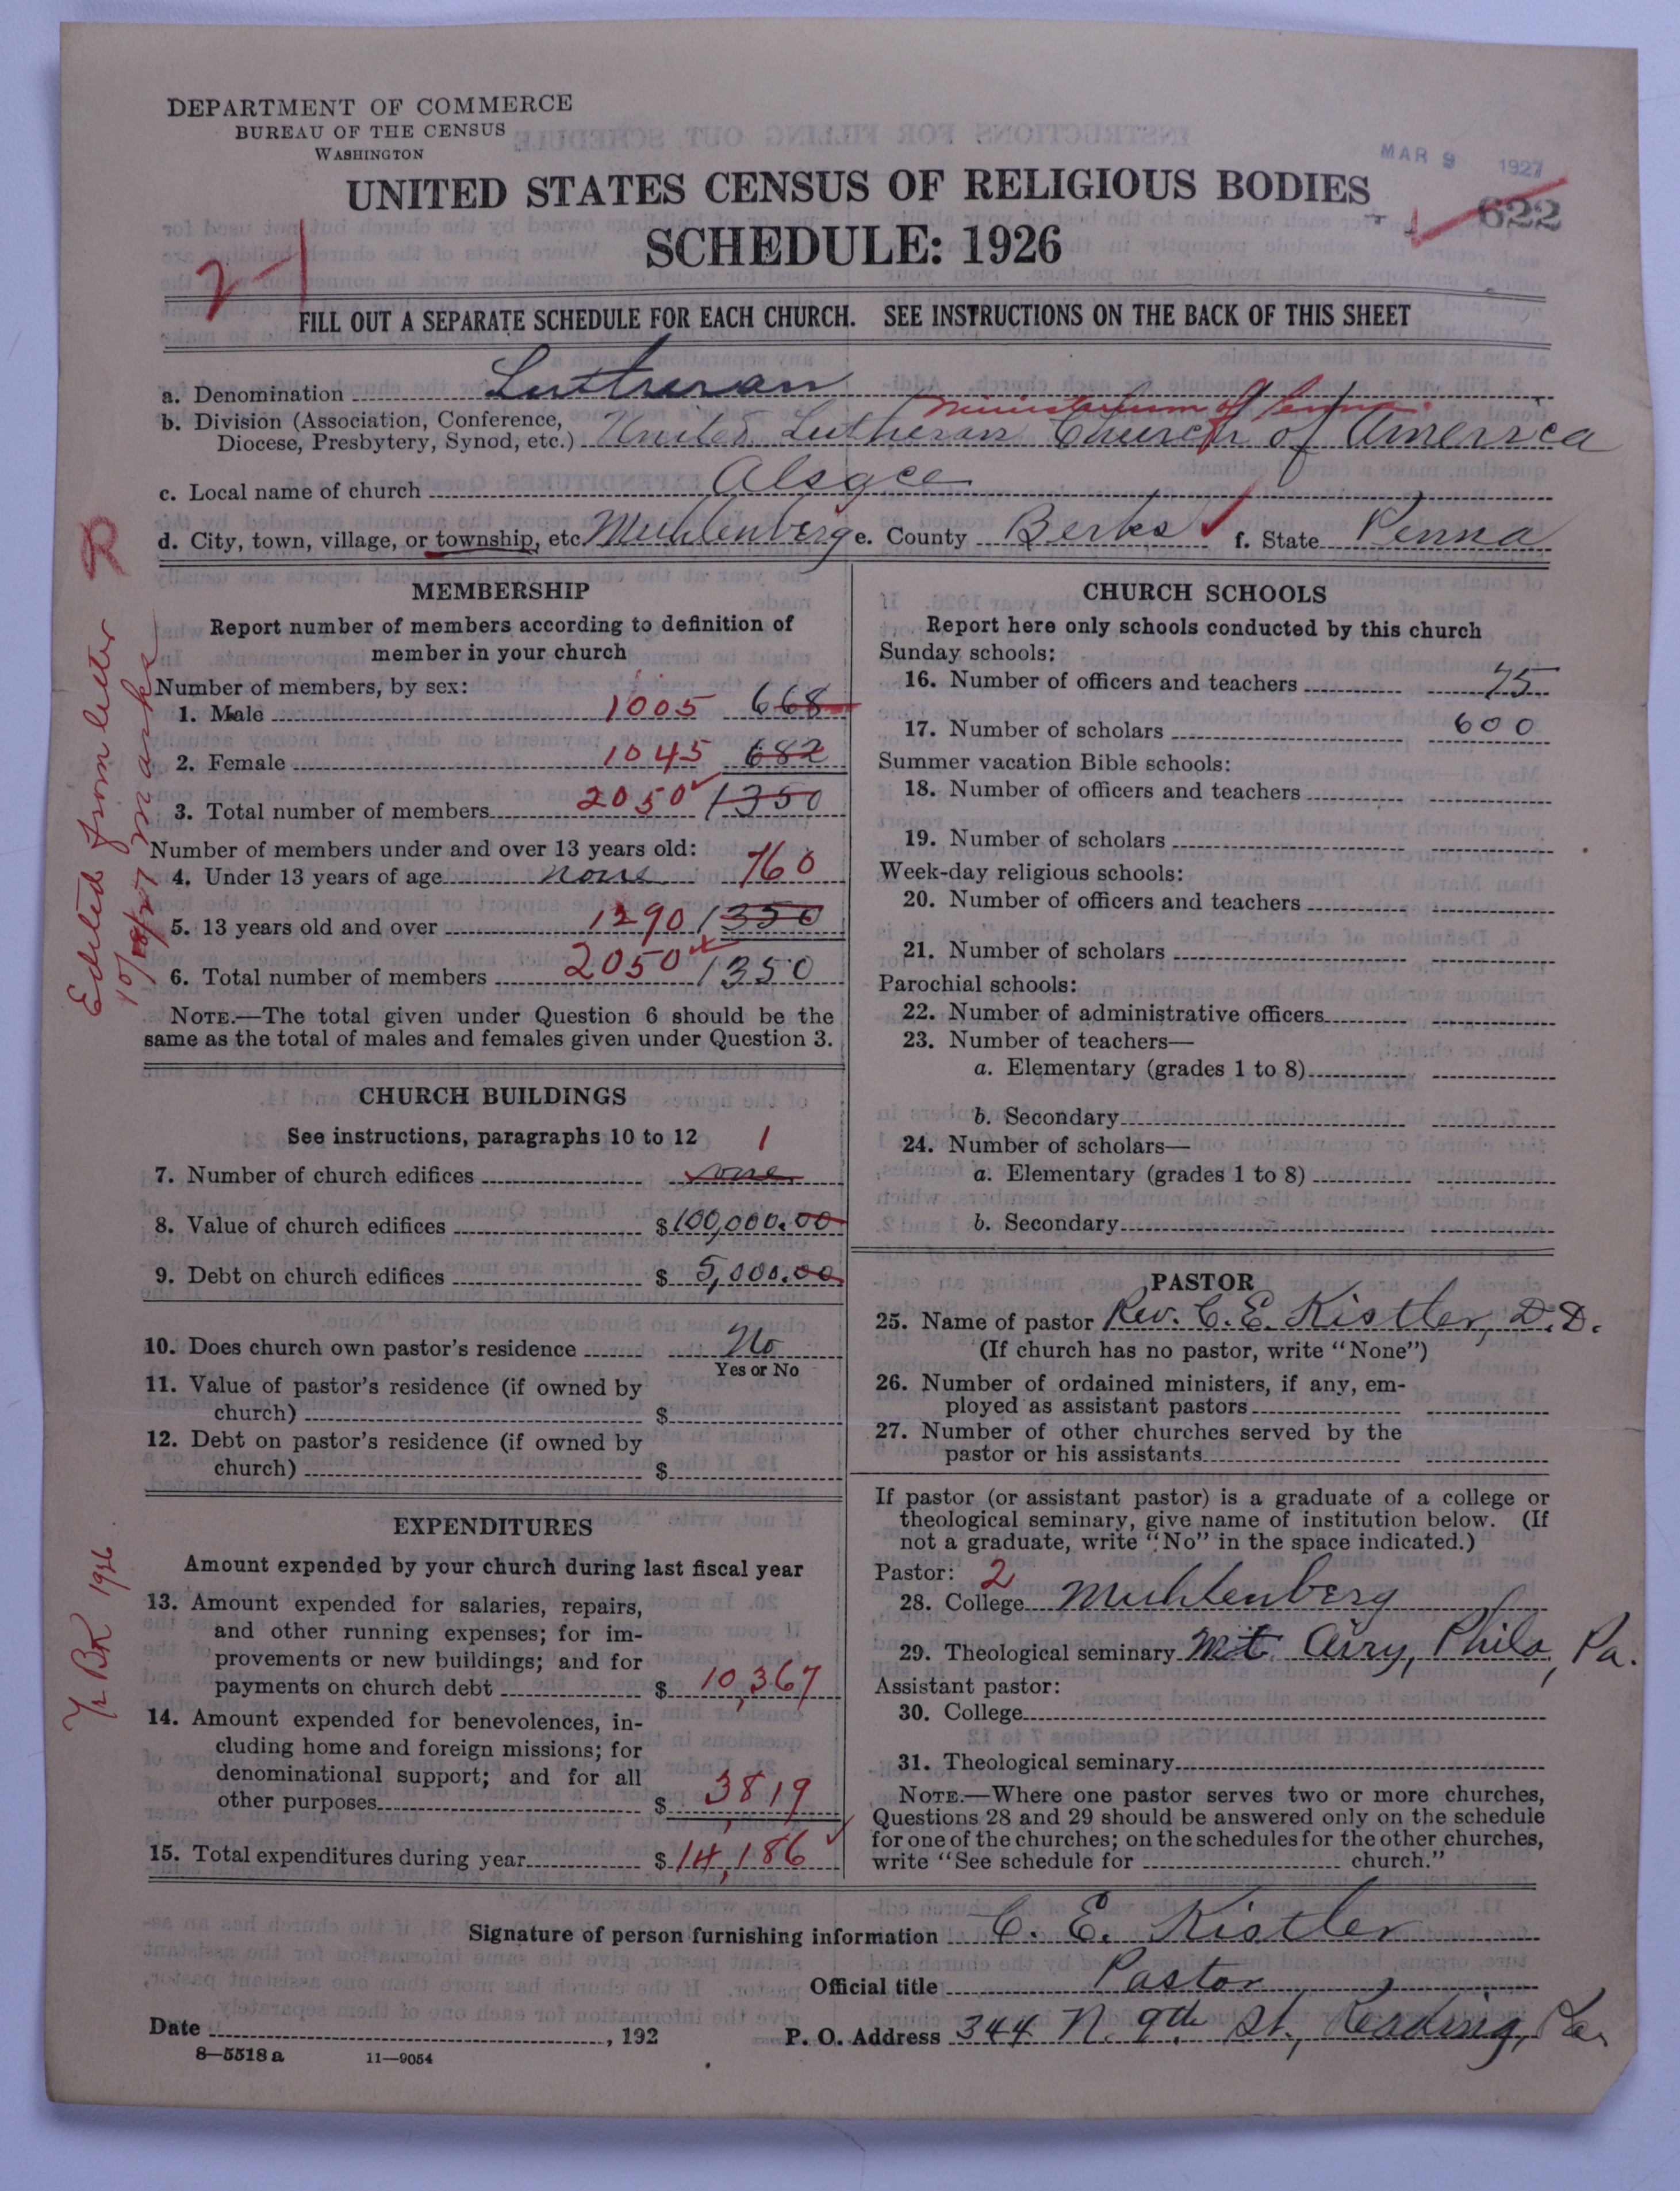 DEPARTMENT OF COMMERCE
BUREAU OF THE CENSUS
WASHINGTON
MAR 9 1927
UNITED STATES CENSUS OF RELIGIOUS BODIES
SCHEDULE: 1926
622
FILL OUT A SEPARATE SCHEDULE FOR EACH CHURCH. SEE INSTRUCTIONS ON THE BACK OF THIS SHEET
a. Denomination Lutheran
Ministerium of Penna.
b. Division (Association, Conference,
Diocese, Presbytery, Synod, etc.) United Lutheran Church of America
c. Local name of church Alsace
d. City, town, village, or township, etc. Muhlenberg e. County Berks f. State Penna
R
Edited from letter
MEMBERSHIP
Report number of members according to definition of
member in your church
Number of members, by sex:
1. Male 1005 668
2. Female 1045 682
3. Total number of members 2050 1350
Number of members under and over 13 years old:
4. Under 13 years of age none 760
5. 13 years old and over 1290 1350
6. Total number of members 2050 1350
NOTE.—The total given under Question 6 should be the
same as the total of males and females given under Question 3.
CHURCH BUILDINGS
See instructions, paragraphs 10 to 12 1
7. Number of church edifices
8. Value of church edifices $100,000.00
9. Debt on church edifices $ 5,000.00
10. Does church own pastor's residence No
Yes or No
11. Value of pastor's residence (if owned by
church) $
12. Debt on pastor's residence (if owned by
church) $
Yr Bk 1926
EXPENDITURES
Amount expended by your church during last fiscal year
13. Amount expended for salaries, repairs,
and other running expenses; for im-
provements or new buildings; and for
payments on church debt $ 10,367
14. Amount expended for benevolences, in-
cluding home and foreign missions; for
denominational support; and for all
other purposes $ 3819
15. Total expenditures during year $ 14,186
CHURCH SCHOOLS
Report here only schools conducted by this church
Sunday schools:
16. Number of officers and teachers 75
17. Number of scholars 600
Summer vacation Bible schools:
18. Number of officers and teachers
19. Number of scholars
Week-day religious schools:
20. Number of officers and teachers
21. Number of scholars
Parochial schools:
22. Number of administrative officers
23. Number of teachers—
a. Elementary (grades 1 to 8)
b. Secondary
24. Number of scholars—
a. Elementary (grades 1 to 8)
b. Secondary
PASTOR
25. Name of pastor Rev. C. E. Kistler, D.D.
(If church has no pastor, write "None")
26. Number of ordained ministers, if any, em-
ployed as assistant pastors
27. Number of other churches served by the
pastor or his assistants
If pastor (or assistant pastor) is a graduate of a college or
theological seminary, give name of institution below. (If
not a graduate, write "No" in the space indicated.)
Pastor: 2
28. College Muhlenberg
29. Theological seminary Mt. Airy, Phila, Pa.
Assistant pastor:
30. College
31. Theological seminary
NOTE.—Where one pastor serves two or more churches,
Questions 28 and 29 should be answered only on the schedule
for one of the churches; on the schedules for the other churches,
write "See schedule for church."
Signature of person furnishing information C. E. Kistler
Official title Pastor
Date , 192 P. O. Address 344 N. 9th St., Reading, Pa.
8—5518 a 11—9054